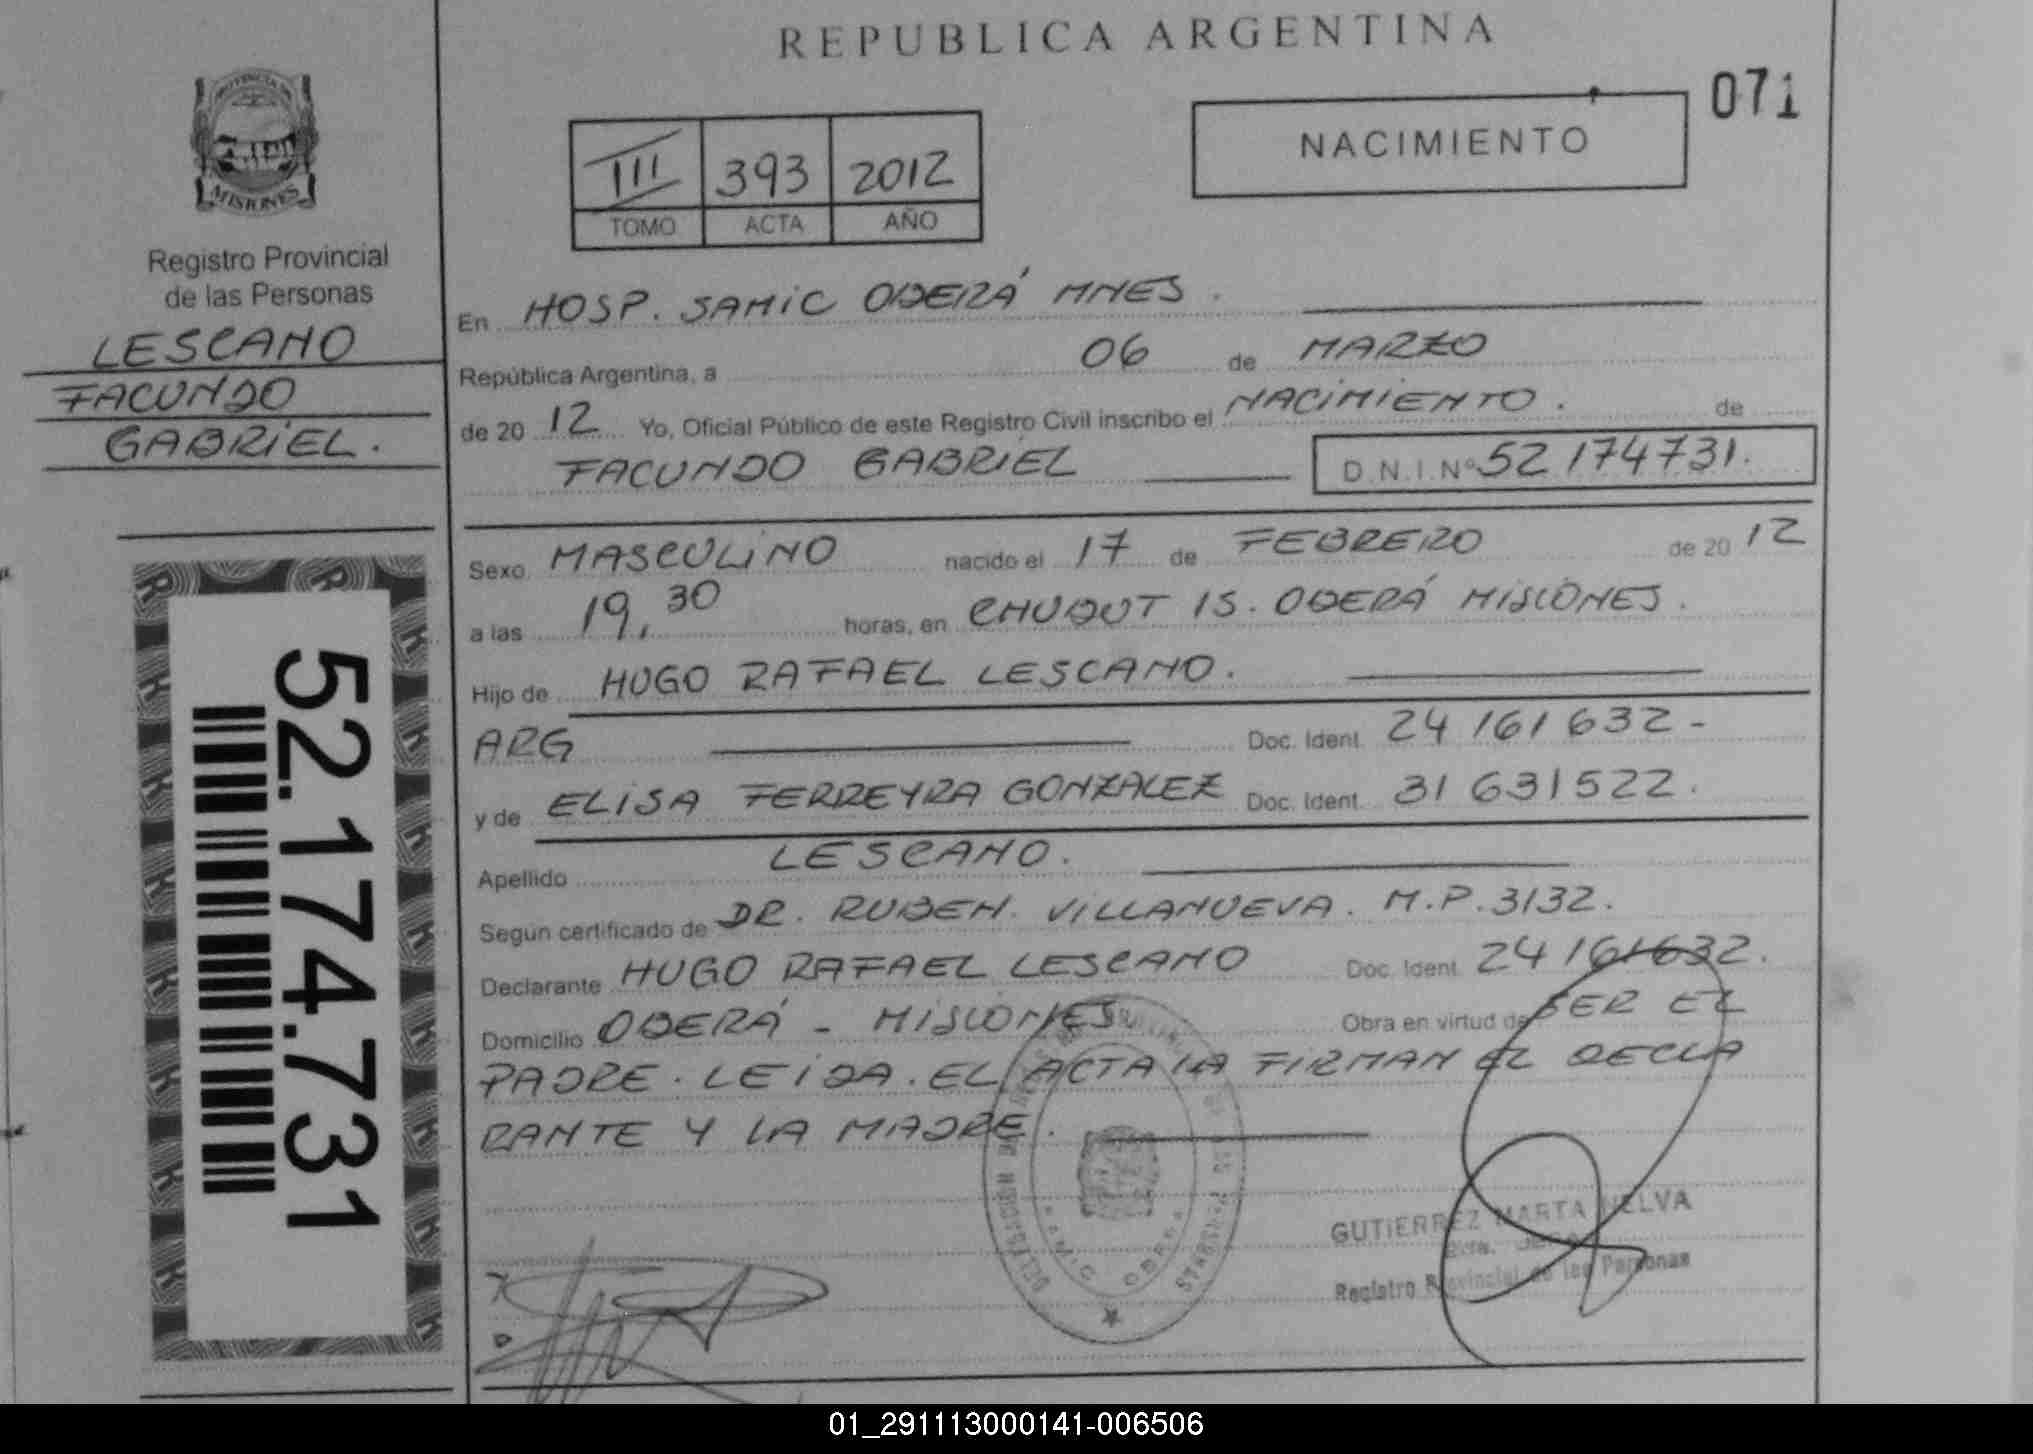 REPUBLICA ARGENTINA
071
NACIMIENTO
III 393 2012
TOMO ACTA AÑO
MISIONES
Registro Provincial
de las Personas
LESCANO
FACUNDO
GABRIEL.
52.174.731
En HOSP. SAMIC OBERÁ MNES.
República Argentina, a 06 de MARZO
de 20 12 Yo, Oficial Público de este Registro Civil inscribo el NACIMIENTO. de
FACUNDO GABRIEL D.N.I.Nº 52 174731.
Sexo MASCULINO nacido el 17 de FEBRERO de 20 12
a las 19,30 horas, en CHUBUT 15. OBERÁ MISIONES.
Hijo de HUGO RAFAEL LESCANO.
ARG Doc. Ident. 24 161 632-
y de ELISA FERREYRA GONZALEZ Doc. Ident. 31 631522.
Apellido LESCANO.
Segun certificado de DR. RUBEN. VILLANUEVA. M.P.3132.
Declarante HUGO RAFAEL LESCANO Doc. Ident. 24 161632.
Domicilio OBERÁ - MISIONES Obra en virtud de SER EL
PADRE. LEIDA. EL ACTA LA FIRMAN EL DECLA
RANTE Y LA MADRE.
GUTIERREZ MARTA NELVA
Registro Provincial de las Personas
01_291113000141-006506